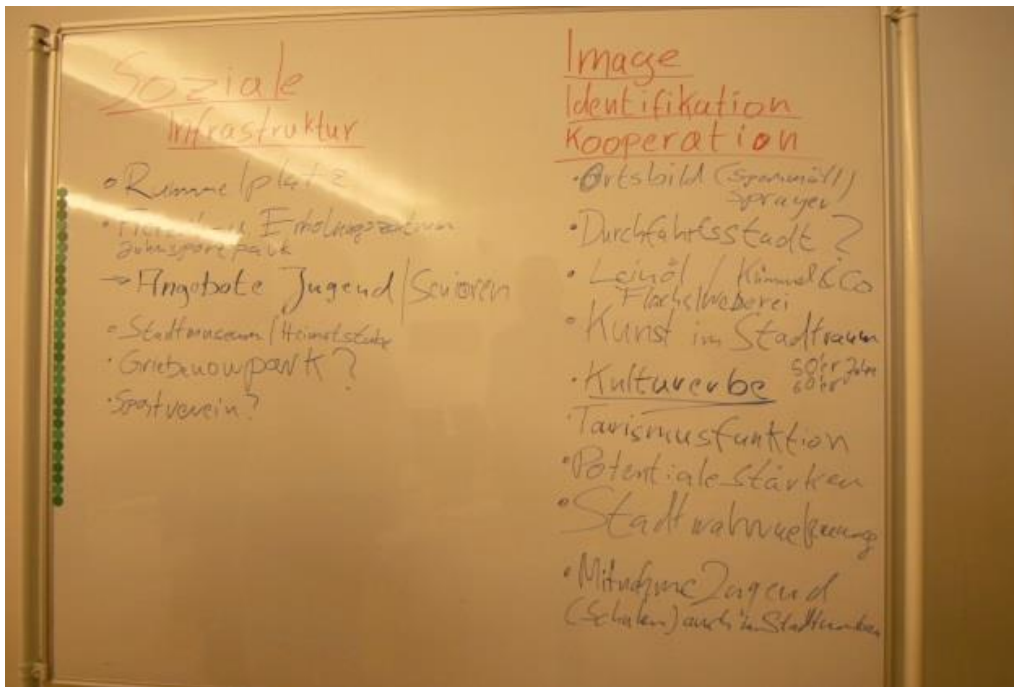 Soziale
Infrastruktur
• Rummelplatz
Erholungszentrum
→ Angebote Jugend/Senioren
• Stadtmuseum/Heimatstube
• Griebenowpark?
• Sportverein?
Image
Identifikation
Kooperation
• Ortsbild (Sperrmüll/
Sprayer)
• Durchfahrtsstadt?
• Leinöl / Kümmel & Co
• Kunst im Stadtraum
• Kulturerbe 50er Jahre
60er
• Tourismusfunktion
• Potentiale stärken
• Stadtwahrnehmung
• Mitnahme Jugend
(Schulen) auch in